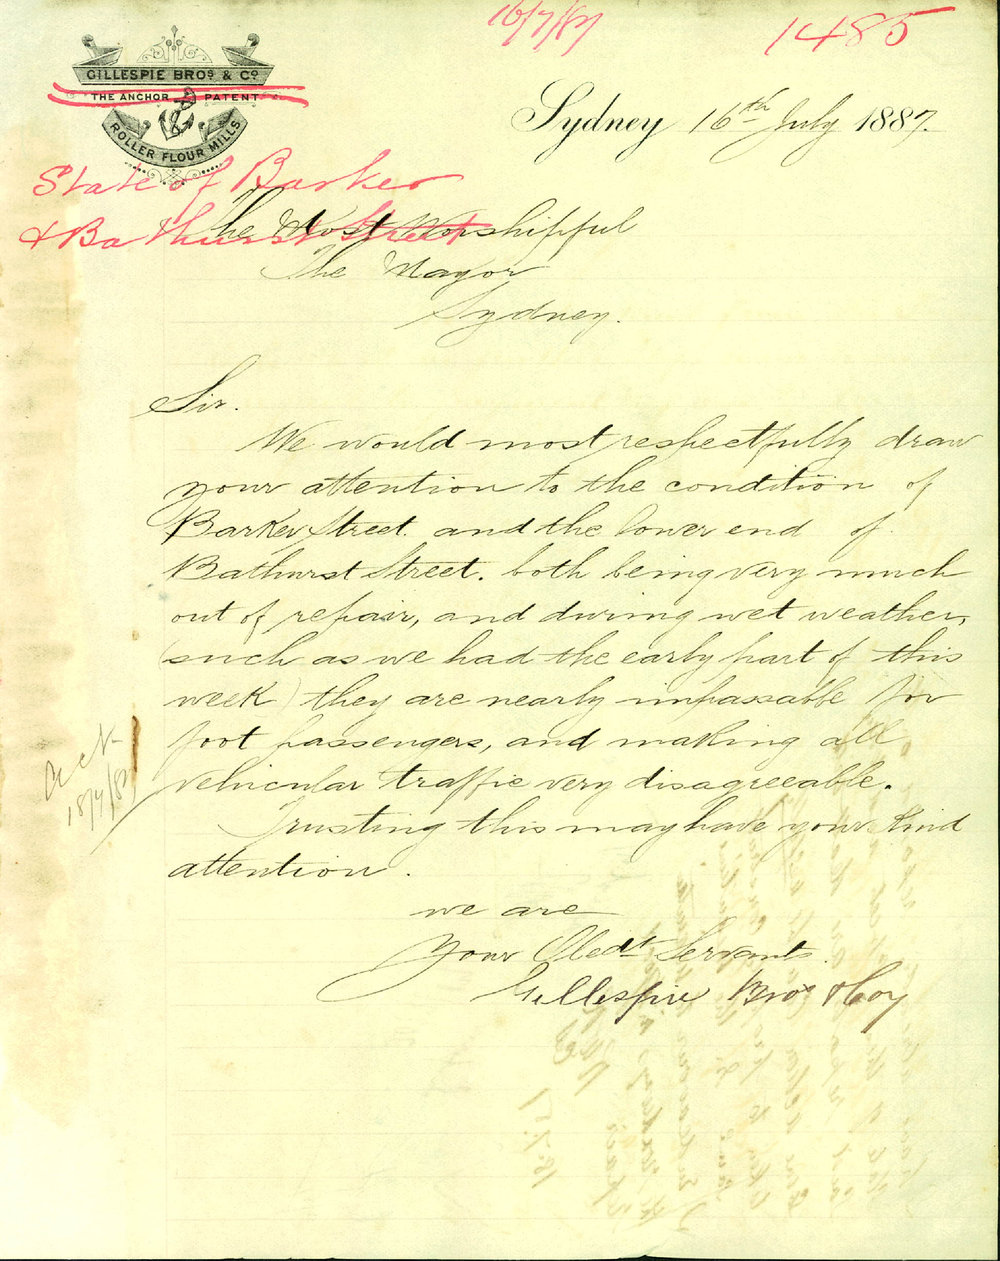 16/7/87
1485
GILLESPIE BROS. & CO.
THE ANCHOR PATENT
ROLLER FLOUR MILLS
Sydney 16th July 1887.
State of Barker
& Bathurst Street
The Most Worshipful
The Mayor
Sydney.
Sir.
We would most respectfully draw
your attention to the condition of
Barker Street. and the lower end of
Bathurst Street. both being very much
out of repair, and during wet weather,
(such as we had the early part of this
week) they are nearly impassable for
foot passengers, and making all
vehicular traffic very disagreeable.
Trusting this may have your kind
attention.
we are
Your Obedt Servants.
Gillespie Bros & Coy
18/7/87
18.7.87